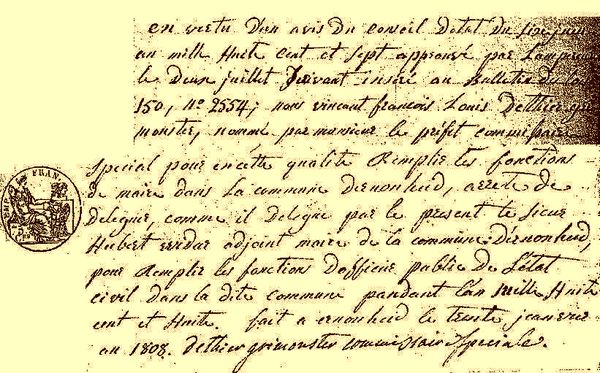 en vertu d'un avis du conseil d'etat du six juin
an mille huite cent et sept approuvé par l'empereur
le deux juillet suivant inseré au Bulletin des lois
150, n° 2554; nous vincent francois Louis dethier gri
monster, nommé par monsieur le préfet commissaire
special pour en cette qualité Remplir les fonctions
de maire dans la commune d'ernonheid, arrete de
Delegué, comme il delegue par le present le sieur
Hubert adjoint maire de la commune d'ernonheid,
pour Remplir les fonctions d'officier public de l'état
civil dans la dite commune pandant l'an mille huite
cent et huite. fait a ernonheid le trente janvier
an 1808. dethier grimonster commissaire speciale.
FRAN